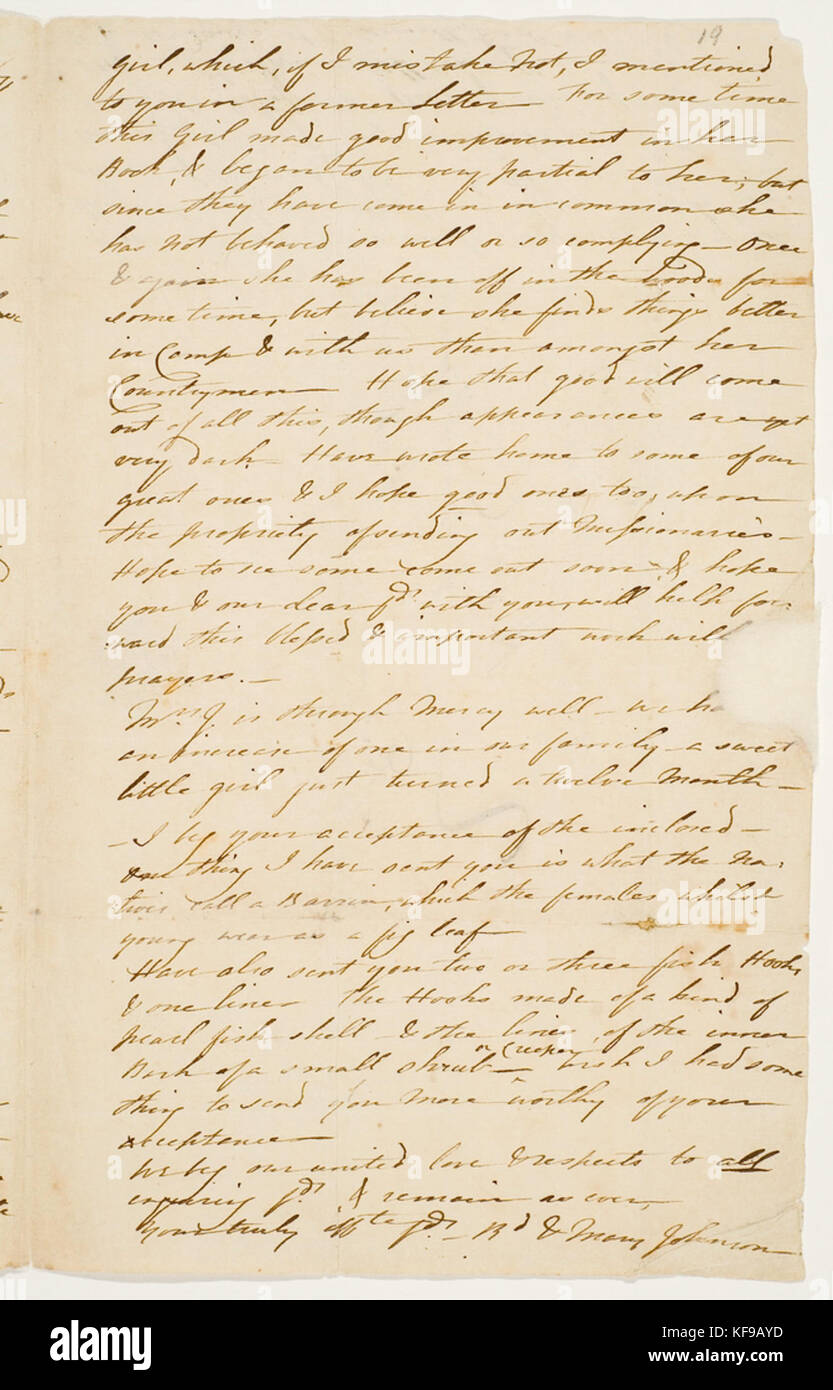 19
girl, which, if I mistake not, I mentioned
to you in a former Letter — For some time
this Girl made good improvement in her
Book, & began to be very partial to her; but
since they have come in in common she
has not behaved so well or so complying — Once
& again she has been off in the Woods for
some time, but believe she finds things better
in Camp & with us than amongst her
Countrymen — Hope that good will come
out of all this, though appearances are yet
very dark — Have wrote home to some of our
great ones & I hope good ones too, upon
the propriety of sending out Missionaries —
Hope to see some come out soon — & hope
you & our dear fds with you, will help for-
ward this blessed & important work with
prayers. —
Mrs J. is through Mercy well — we ha
an increase of one in our family — a sweet
little girl just turned a twelve Month —
— I beg your acceptance of the inclosed —
One thing I have sent you is what the na-
tives call a Barrin, which the females whilst
young wear as a fig leaf —
Have also sent you two or three fish Hooks
& one line — The Hooks made of a kind of
pearl fish shell — & the lines, of the inner
Bark of a small shrub or Creeper — wish I had some
thing to send you more worthy of your
acceptance —
We beg our united love & respects to all
inquiring fds & remain as ever,
Yours truly affte fds — Rd & Mary Johnson
alamy
Image ID: KF9AYD
www.alamy.com